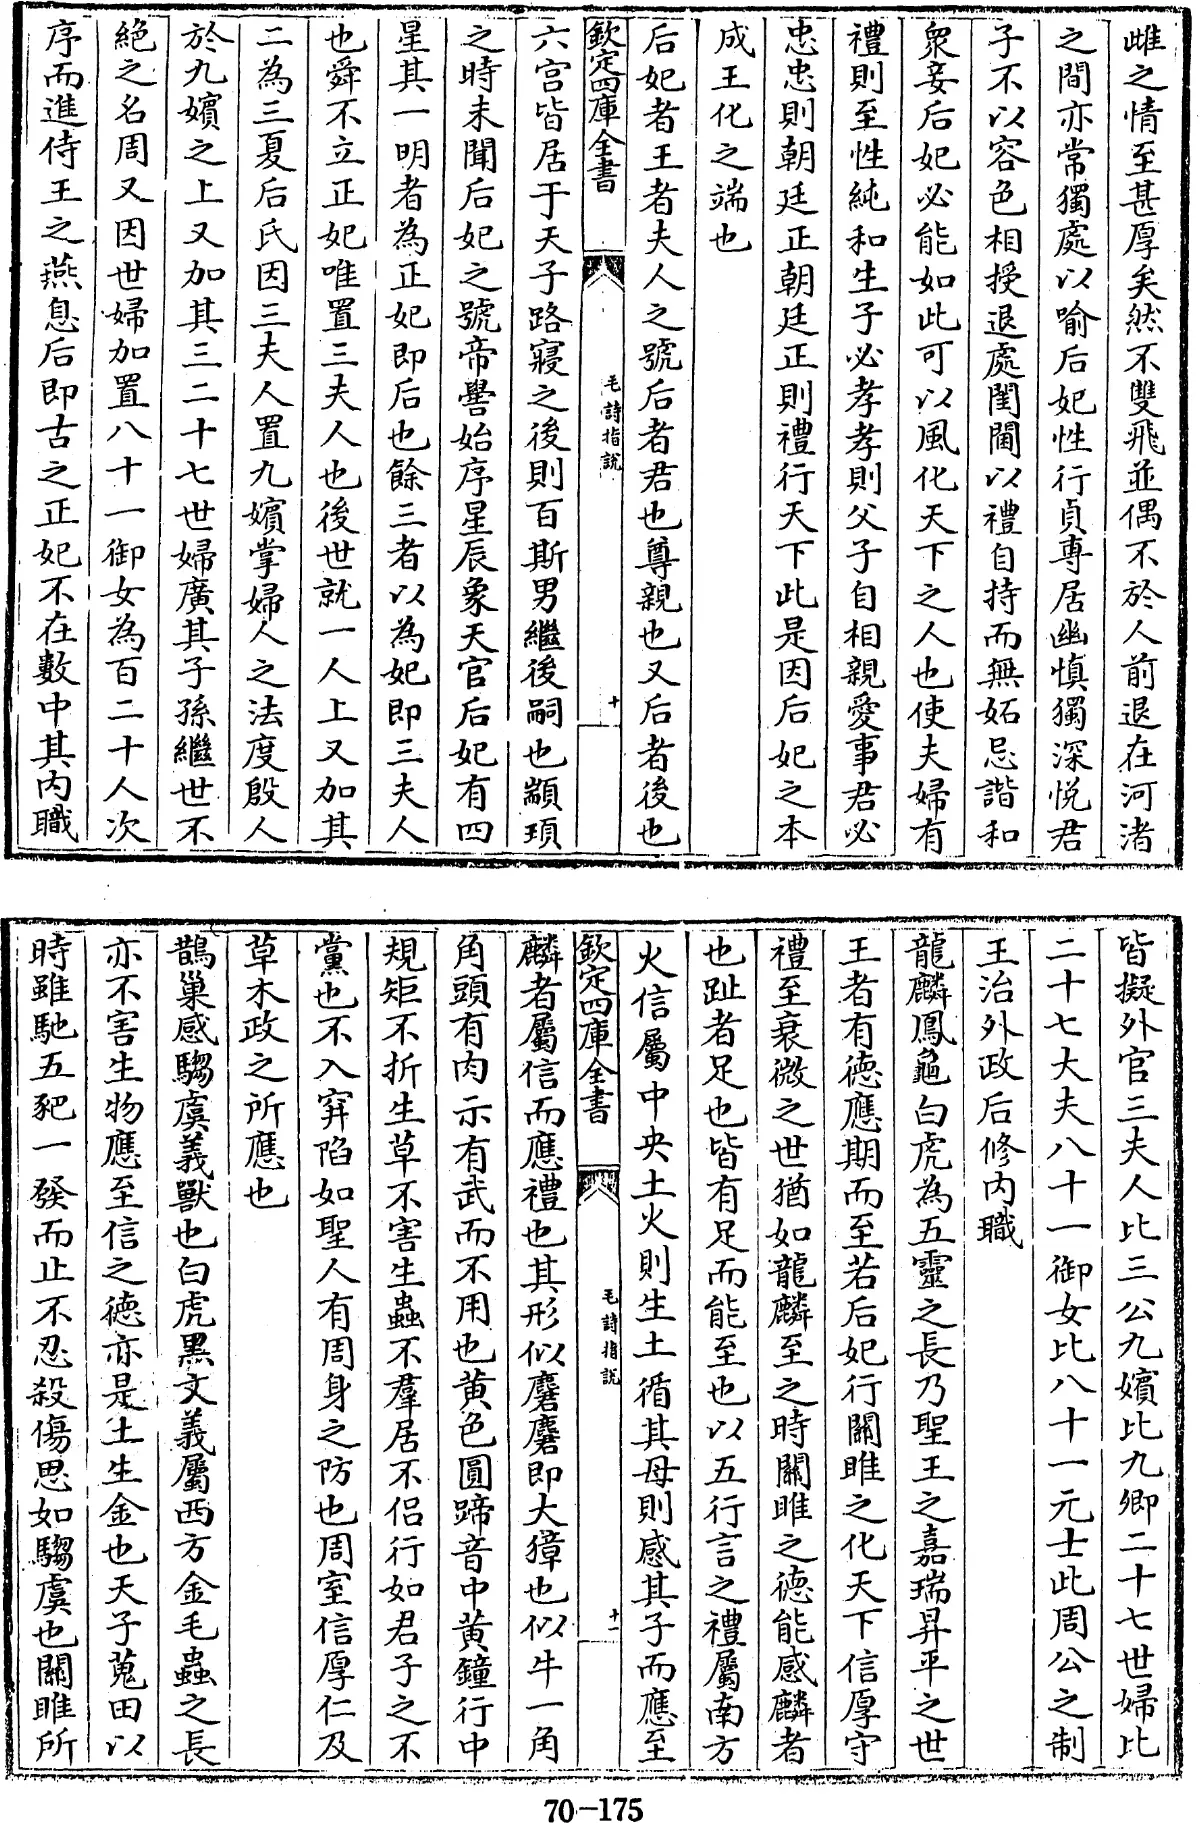 雎之情至甚厚矣然不雙飛並偶不於人前退在河渚
之間亦常獨處以喻后妃性行貞專居幽慎獨深悅君
子不以容色相授退處閨閫以禮自持而無妬忌諧和
衆妾后妃必能如此可以風化天下之人也使夫婦有
禮則至性純和生子必孝孝則父子自相親愛事君必
忠忠則朝廷正朝廷正則禮行天下此是因后妃之本
成王化之端也
后妃者王者夫人之號后者君也尊親也又后者後也
欽定四庫全書
毛詩指說
十
六宫皆居于天子路寢之後則百斯男繼後嗣也顓頊
之時未聞后妃之號帝嚳始序星辰象天官后妃有四
星其一明者為正妃即后也餘三者以為妃即三夫人
也舜不立正妃唯置三夫人也後世就一人上又加其
二為三夏后氏因三夫人置九嬪掌婦人之法度殷人
於九嬪之上又加其三二十七世婦廣其子孫繼世不
絶之名周又因世婦加置八十一御女為百二十人次
序而進侍王之燕息后即古之正妃不在數中其内職
皆擬外官三夫人比三公九嬪比九卿二十七世婦比
二十七大夫八十一御女比八十一元士此周公之制
王治外政后修内職
龍麟鳳龜白虎為五靈之長乃聖王之嘉瑞昇平之世
王者有德應期而至若后妃行關雎之化天下信厚守
禮至衰微之世猶如龍麟至之時關雎之德能感麟者
也趾者足也皆有足而能至也以五行言之禮屬南方
火信屬中央土火則生土循其母則感其子而應至
欽定四庫全書
毛詩指說
十一
麟者屬信而應禮也其形似麏麏即大獐也似牛一角
角頭有肉示有武而不用也黄色圓蹄音中黄鐘行中
規矩不折生草不害生蟲不羣居不侣行如君子之不
黨也不入穽陷如聖人有周身之防也周室信厚仁及
草木政之所應也
鵲巢感騶虞義獸也白虎黑文義屬西方金毛蟲之長
亦不害生物應至信之德亦是土生金也天子蒐田以
時雖馳五豝一發而止不忍殺傷思如騶虞也關雎所
70-175